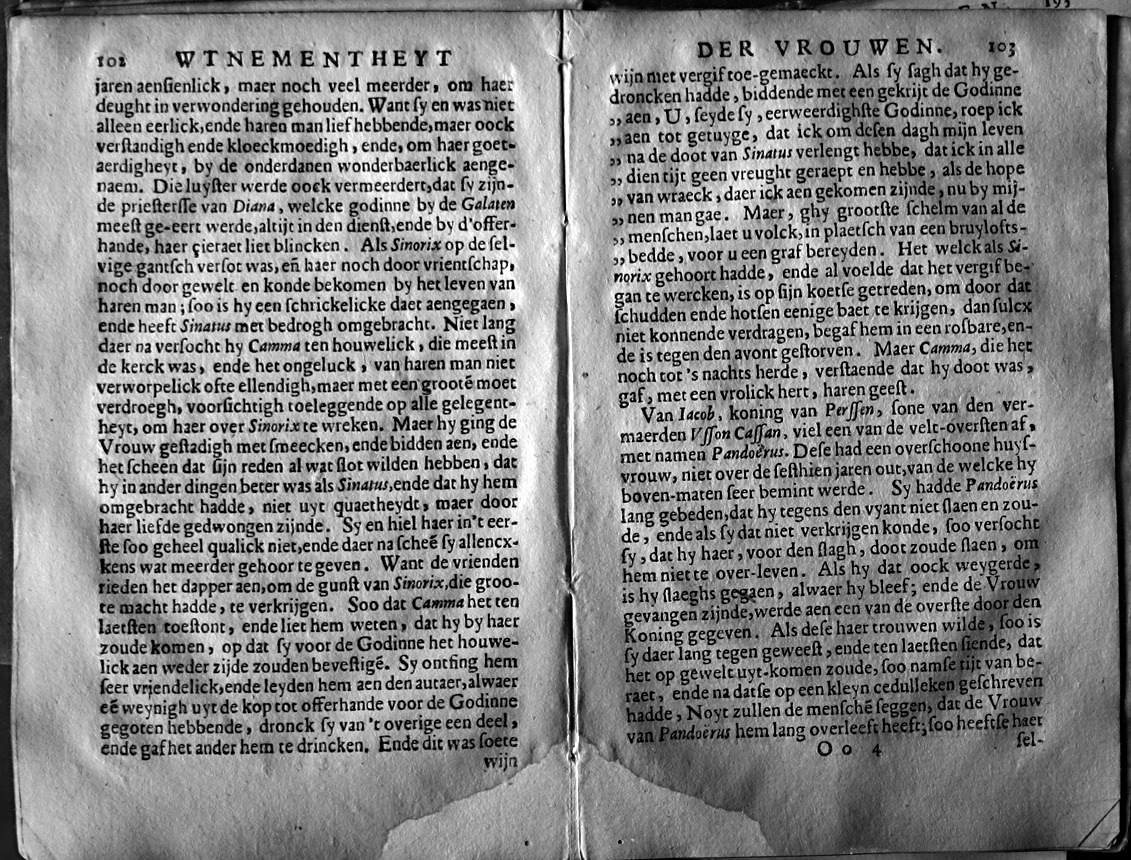 102 WTNEMENTHEYT
jaren aenſienlick, maer noch veel meerder, om haer
deught in verwondering gehouden. Want ſy en was niet
alleen eerlick, ende haren man lief hebbende, maer oock
verſtandigh ende kloeckmoedigh, ende, om haer goet-
aerdigheyt, by de onderdanen wonderbaerlick aenge-
naem. Die luyſter werde oock vermeerdert, dat ſy zijn-
de prieſterſſe van Diana, welcke godinne by de Galaten
meeſt ge-eert werde, altijt in den dienſt, ende by d'offer-
hande, haer çieraet liet blincken. Als Sinorix op de ſel-
vige gantſch verſot was, eñ haer noch door vrientſchap,
noch door gewelt en konde bekomen by het leven van
haren man; ſoo is hy een ſchrickelicke daet aengegaen,
ende heeft Sinatus met bedrogh omgebracht. Niet lang
daer na verſocht hy Camma ten houwelick, die meeſt in
de kerck was, ende het ongeluck, van haren man niet
verworpelick ofte ellendigh, maer met een grootē moet
verdroegh, voorſichtigh toeleggende op alle gelegent-
heyt, om haer over Sinorix te wreken. Maer hy ging de
Vrouw geſtadigh met ſmeecken, ende bidden aen, ende
het ſcheen dat ſijn reden al wat ſlot wilden hebben, dat
hy in ander dingen beter was als Sinatus, ende dat hy hem
omgebracht hadde, niet uyt quaetheydt, maer door
haer liefde gedwongen zijnde. Sy en hiel haer in't eer-
ſte ſoo geheel qualick niet, ende daer na ſcheē ſy allencx-
kens wat meerder gehoor te geven. Want de vrienden
rieden het dapper aen, om de gunſt van Sinorix, die groo-
te macht hadde, te verkrijgen. Soo dat Camma het ten
laetſten toeſtont, ende liet hem weten, dat hy by haer
zoude komen, op dat ſy voor de Godinne het houwe-
lick aen weder zijde zouden beveſtigē. Sy ontfing hem
ſeer vrjendelick, ende leyden hem aen den autaer, alwaer
eē weynigh uyt de kop tot offerhande voor de Godinne
gegoten hebbende, dronck ſy van 't overige een deel,
ende gaf het ander hem te drincken. Ende dit was ſoete
wijn
DER VROUWEN. 103
wijn met vergif toe-gemaeckt. Als ſy ſagh dat hy ge-
droncken hadde, biddende met een gekrijt de Godinne
„ aen, U, ſeyde ſy, eerweerdighſte Godinne, roep ick
„ aen tot getuyge, dat ick om deſen dagh mijn leven
„ na de doot van Sinatus verlengt hebbe, dat ick in alle
„ dien tijt geen vreught geraept en hebbe, als de hope
„ van wraeck, daer ick aen gekomen zijnde, nu by mij-
„ nen man gae. Maer, ghy grootſte ſchelm van al de
„ menſchen, laet u volck, in plaetſch van een bruylofts-
„ bedde, voor u een graf bereyden. Het welck als Si-
norix gehoort hadde, ende al voelde dat het vergif be-
gan te wercken, is op ſijn koetſe getreden, om door dat
ſchudden ende hotſen eenige baet te krijgen, dan ſulcx
niet konnende verdragen, begaf hem in een roſbare, en-
de is tegen den avont geſtorven. Maer Camma, die het
noch tot 's nachts herde, verſtaende dat hy doot was,
gaf, met een vrolick hert, haren geeſt.
Van Iacob, koning van Perſſen, ſone van den ver-
maerden Vſſon Caſſan, viel een van de velt-overſten af,
met namen Pandoërus. Deſe had een overſchoone huyſ-
vrouw, niet over de ſeſthien jaren out, van de welcke hy
boven-maten ſeer bemint werde. Sy hadde Pandoërus
lang gebeden, dat hy tegens den vyant niet ſlaen en zou-
de, ende als ſy dat niet verkrijgen konde, ſoo verſocht
ſy, dat hy haer, voor den ſlagh, doot zoude ſlaen, om
hem niet te over-leven. Als hy dat oock weygerde,
is hy ſlaeghs gegaen, alwaer hy bleef; ende de Vrouw
gevangen zijnde, werde aen een van de overſte door den
Koning gegeven. Als deſe haer trouwen wilde, ſoo is
ſy daer lang tegen geweeſt, ende ten laetſten ſiende, dat
het op gewelt uyt-komen zoude, ſoo namſe tijt van be-
raet, ende na datſe op een kleyn cedulleken geſchreven
hadde, Noyt zullen de menſchē ſeggen, dat de Vrouw
van Pandoërus hem lang overleeft heeft; ſoo heeftſe haer
Oo 4 ſel-